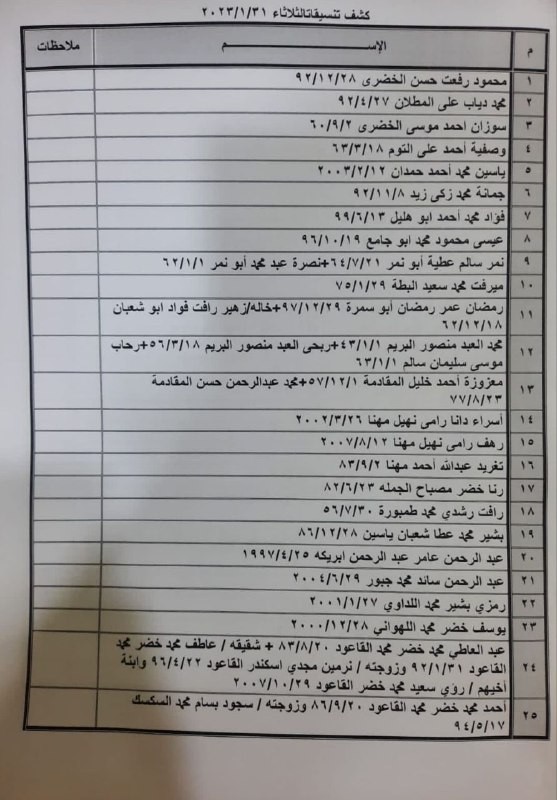 كشف تنسيقات الثلاثاء ٢٠٢٣/١/٣١
م الإســـــــــم ملاحظات
١ محمود رفعت حسن الخضرى ٩٢/١٢/٢٨
٢ محمد دياب على المطلان ٩٢/٤/٢٧
٣ سوزان احمد موسى الخضرى ٦٠/٩/٢
٤ وصفية أحمد على التوم ٦٣/٣/١٨
٥ ياسين محمد أحمد حمدان ٢٠٠٣/٢/١٢
٦ جمانة محمد زكى زيد ٩٢/١١/٨
٧ فؤاد محمد أحمد ابو هليل ٩٩/٦/١٣
٨ عيسى محمود محمد ابو جامع ٩٦/١٠/١٩
٩ نمر سالم عطية أبو نمر ٦٤/٧/٢١+نصرة عبد محمد أبو نمر ٦٢/١/١
١٠ ميرفت محمد سعيد البطة ٧٥/١/٢٩
١١ رمضان عمر رمضان أبو سمرة ٩٧/١٢/٢٩+خاله/زهير رافت فواد ابو شعبان
٦٢/١٢/١٨
١٢ محمد العبد منصور البريم ٤٣/١/١+ربحى العبد منصور البريم ٥٦/٣/١٨+رحاب
موسى سليمان سالم ٦٣/١/١
١٣ معزوزة أحمد خليل المقادمة ٥٧/١٢/١+محمد عبدالرحمن حسن المقادمة
٧٧/٨/٢٣
١٤ أسراء دانا رامى نهيل مهنا ٢٠٠٢/٣/٢٦
١٥ رهف رامى نهيل مهنا ٢٠٠٧/٨/١٢
١٦ تغريد عبدالله أحمد مهنا ٨٣/٩/٢
١٧ رنا خضر مصباح الجمله ٨٢/٦/٢٣
١٨ رافت رشدي محمد طمبورة ٥٦/٧/٣٠
١٩ بشير محمد عطا شعبان ياسين ٨٦/١٢/٢٨
٢٠ عبد الرحمن عامر عبد الرحمن ابريكه ١٩٩٧/٤/٢٥
٢١ عبد الرحمن سائد محمد جبور ٢٠٠٤/٦/٢٩
٢٢ رمزي بشير محمد اللداوي ٢٠٠١/١/٢٧
٢٣ يوسف خضر محمد اللهواني ٢٠٠٠/١٢/٢٨
٢٤ عبد العاطي محمد خضر محمد القاعود ٨٣/٨/٢٠ + شقيقه / عاطف محمد خضر محمد
القاعود ٩٢/١/٣١ وزوجته / نرمين مجدي اسكندر القاعود ٩٦/٤/٢٢ وابنة
أخيهم / رؤي سعيد محمد خضر القاعود ٢٠٠٧/١٠/٢٩
٢٥ أحمد محمد خضر محمد القاعود ٨٦/٩/٢٠ وزوجته / سجود بسام محمد السكسك
٩٤/٥/١٧